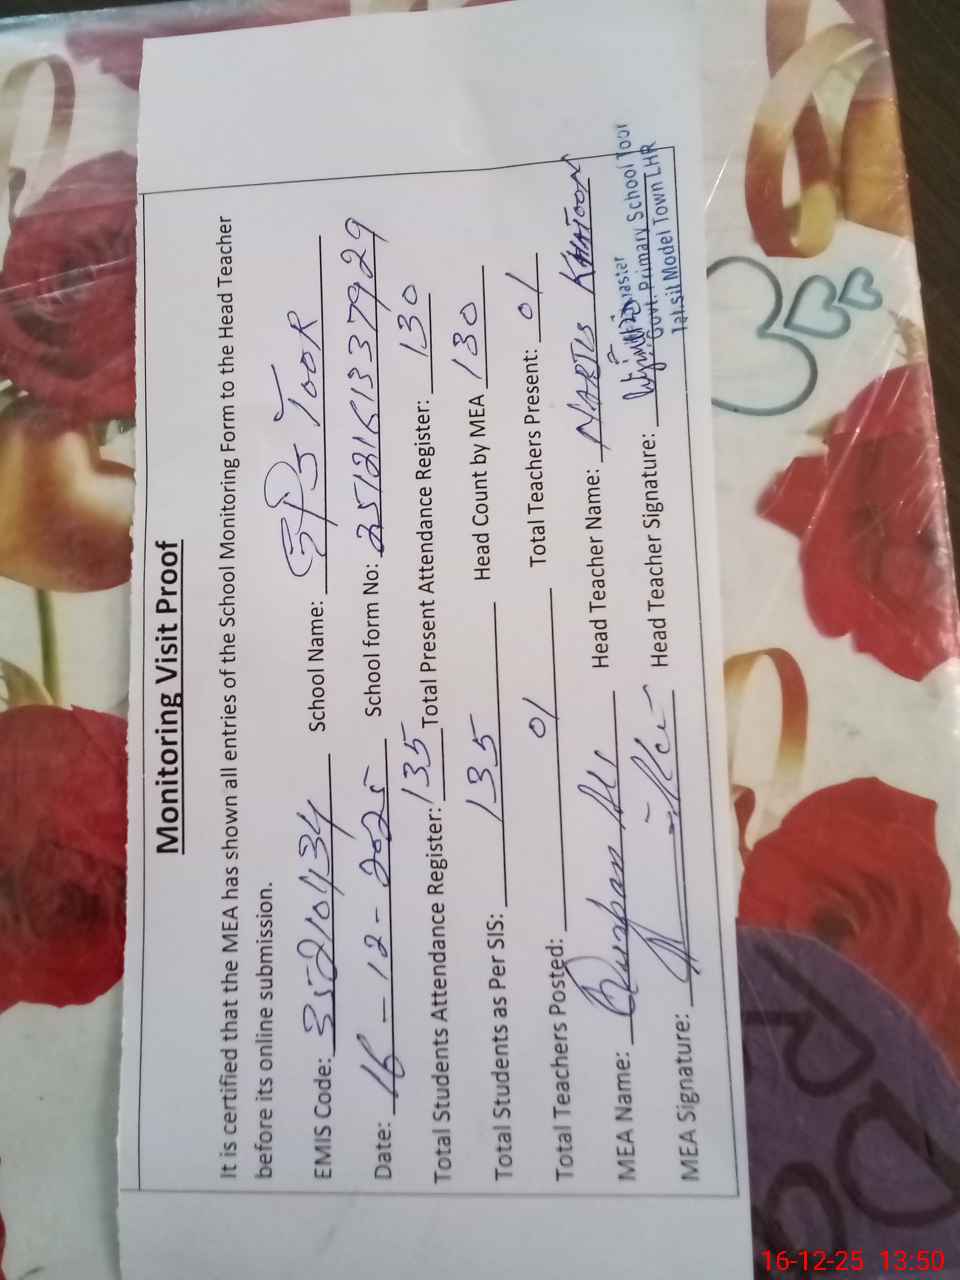 Monitoring Visit Proof
It is certified that the MEA has shown all entries of the School Monitoring Form to the Head Teacher
before its online submission.
EMIS Code: 35210434 School Name: GPS TOOR
Date: 16-12-2025 School form No: 2512161337929
Total Students Attendance Register: 135 Total Present Attendance Register: 130
Total Students as Per SIS: 135 Head Count by MEA 130
Total Teachers Posted: 01 Total Teachers Present: 01
MEA Name: Ali Head Teacher Name: NARJIS KHATOON
MEA Signature: Head Teacher Signature:
Govt. Primary School Toor
Tehsil Model Town LHR
16-12-25 13:50